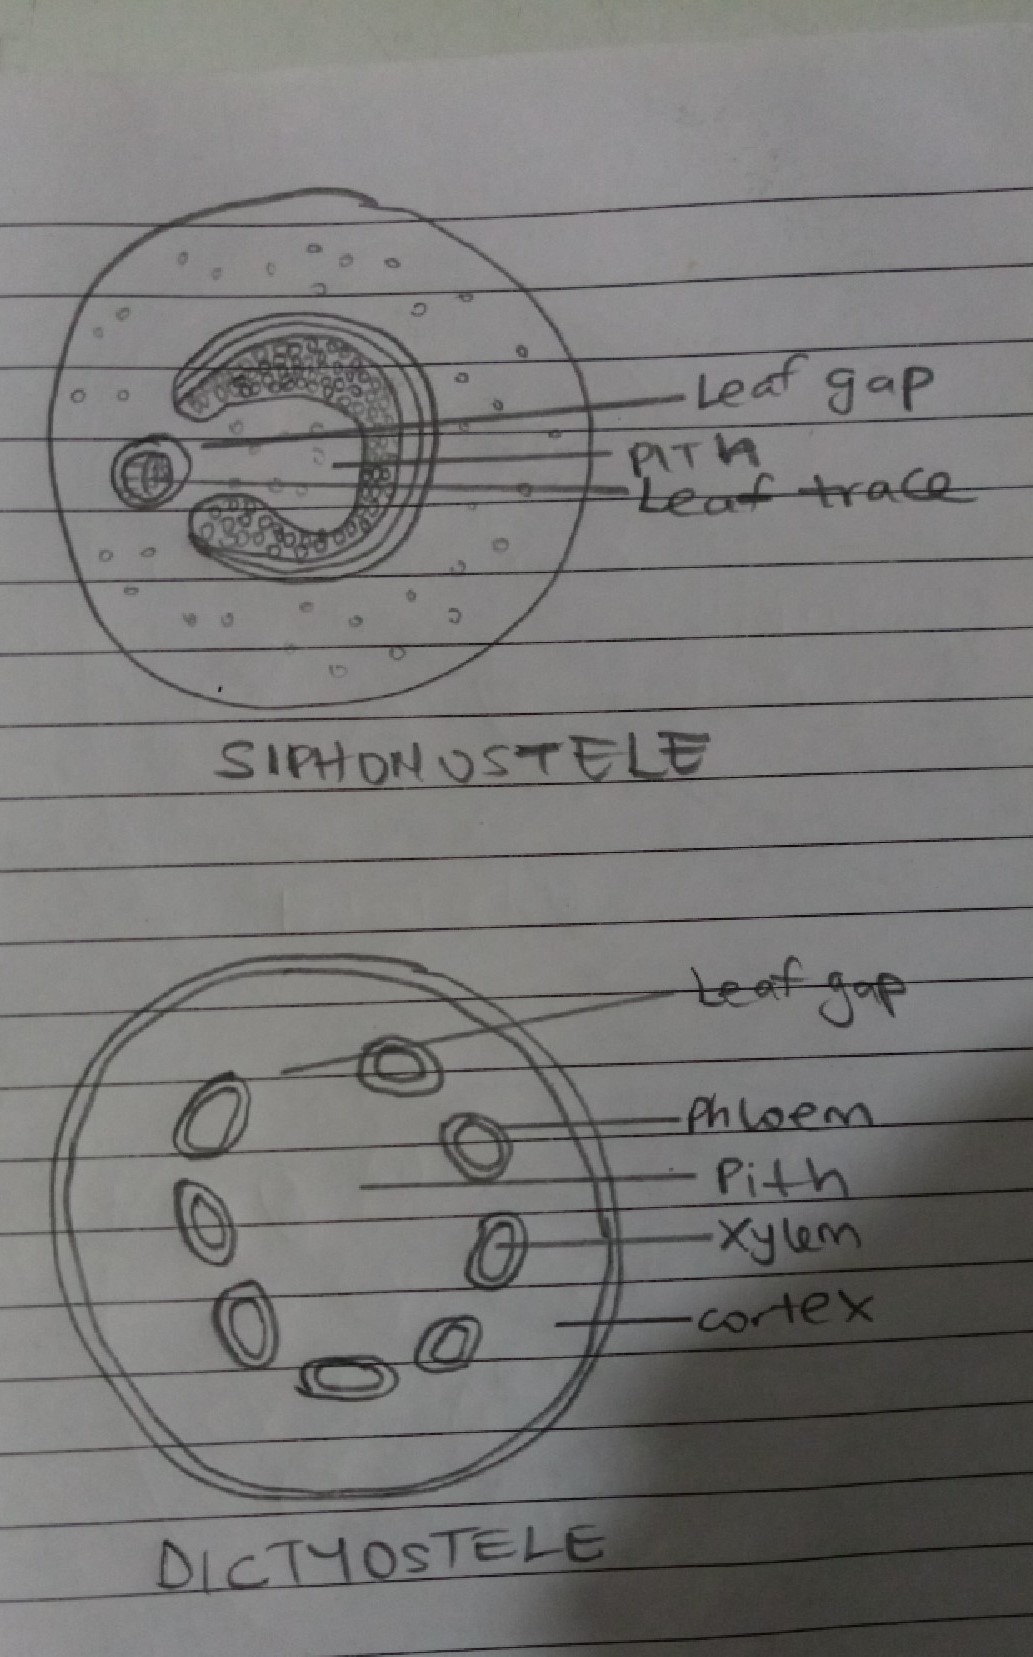 Leaf gap
PITH
Leaf trace
SIPHONOSTELE
Leaf gap
Phloem
Pith
Xylem
cortex
DICTYOSTELE